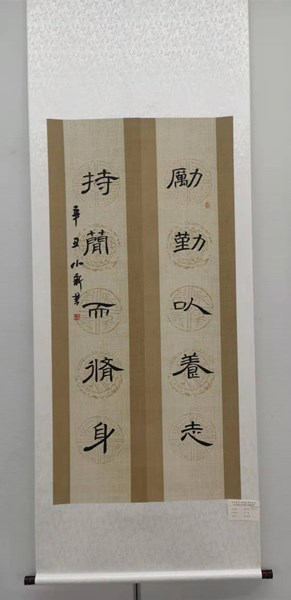 勵勤以養志
持簡而脩身
辛丑小新書